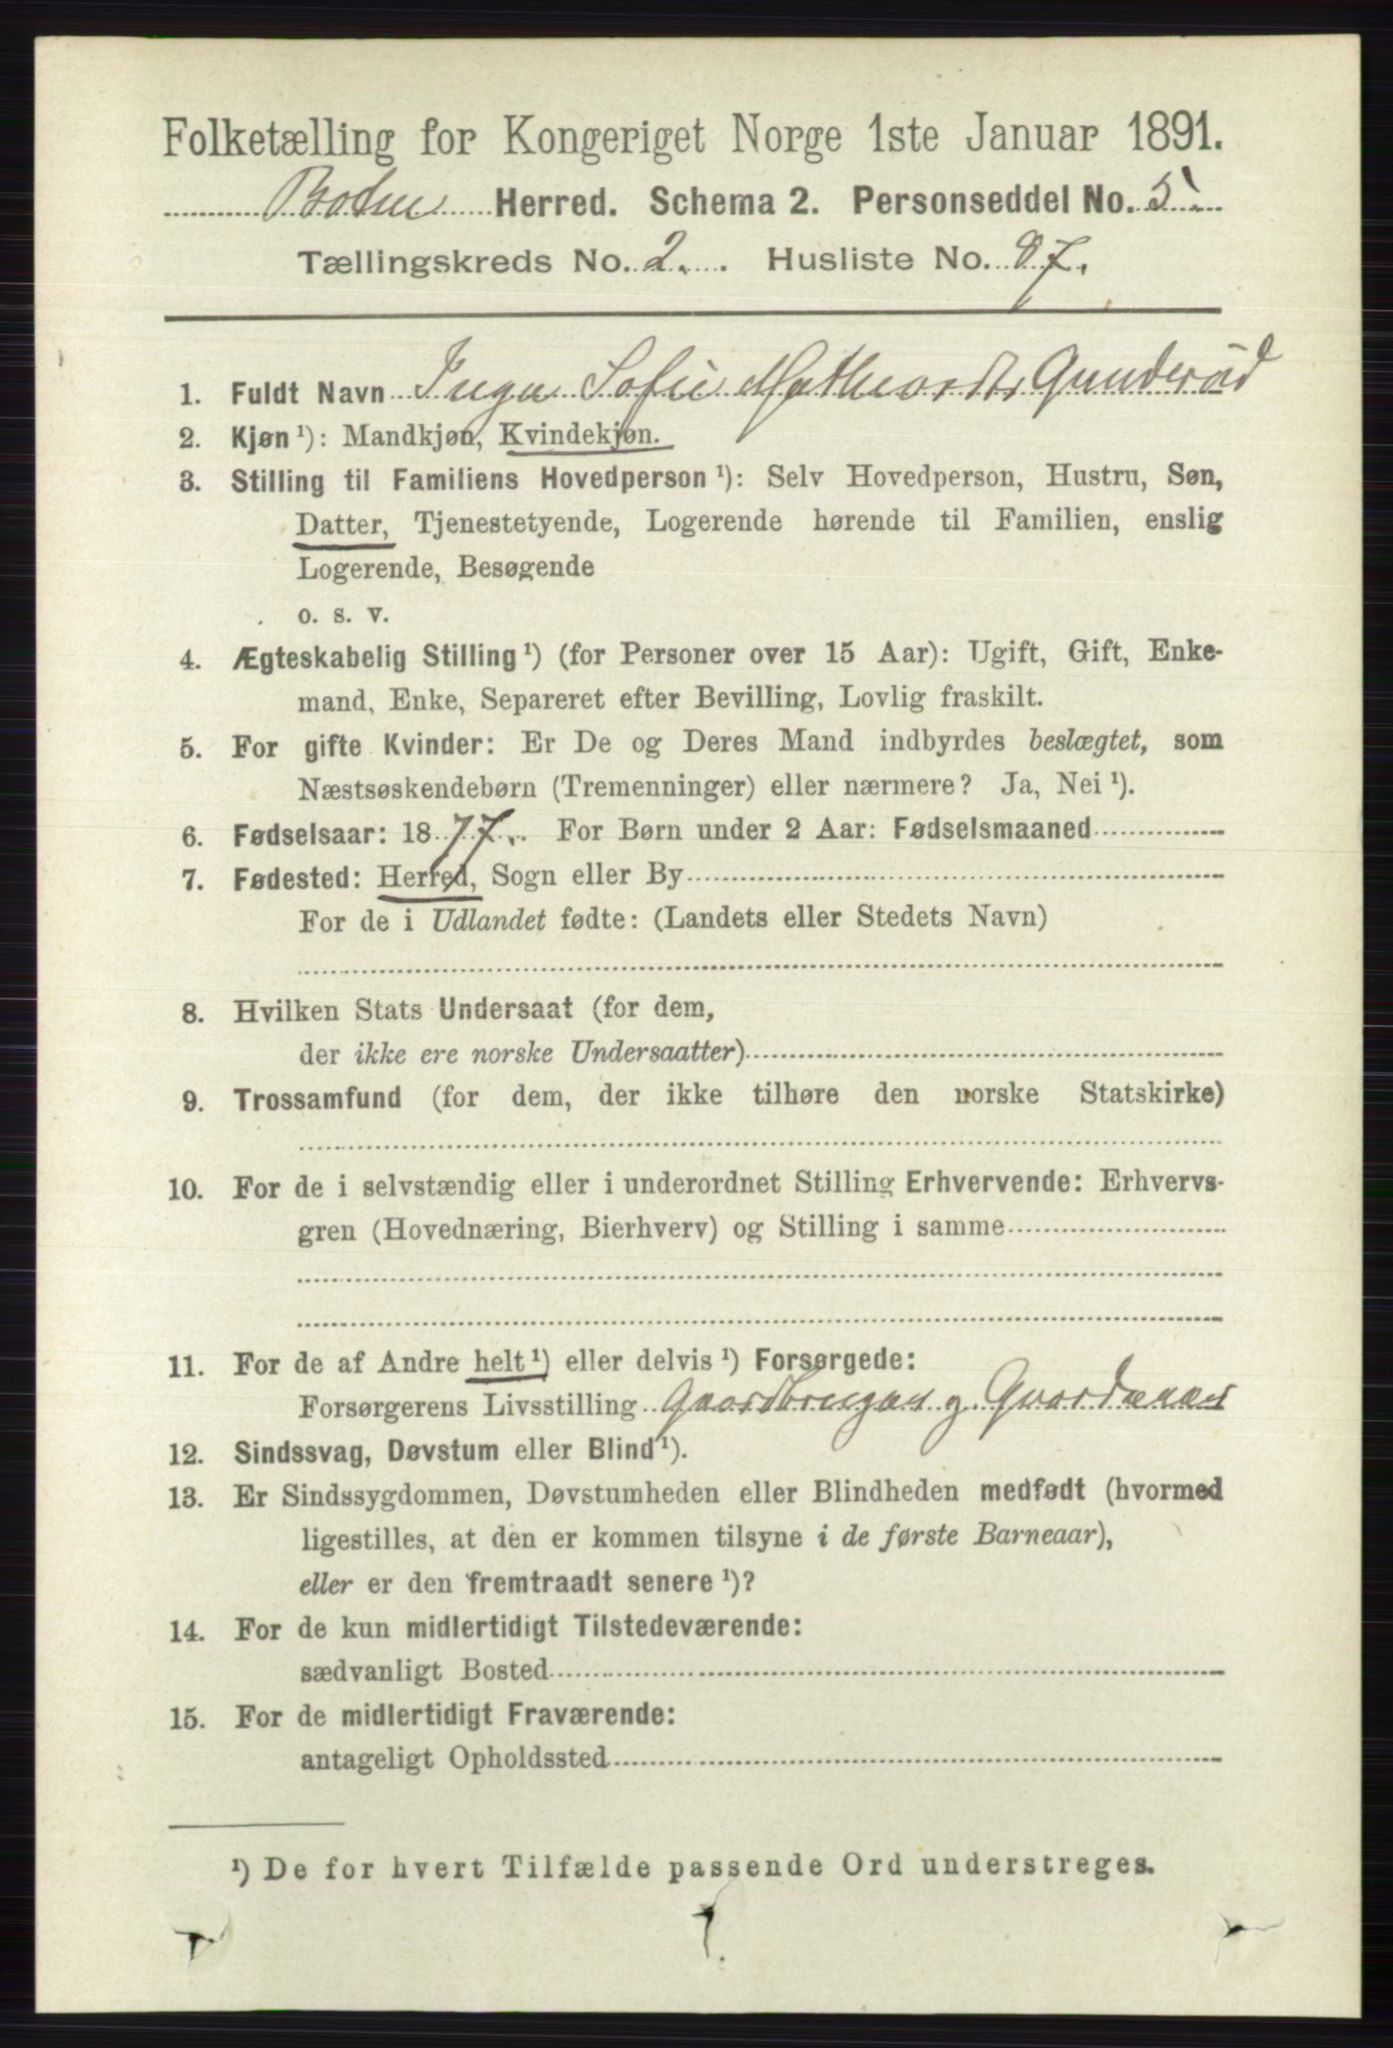 Folketælling for Kongeriget Norge 1ste Januar 1891.
Botne Herred. Schema 2. Personseddel No. 5.
Tællingskreds No. 2. Husliste No. 87.
1. Fuldt Navn Inga Sofie Gunderöd
2. Kjøn ¹): Mandkjøn, Kvindekjøn.
3. Stilling til Familiens Hovedperson ¹): Selv Hovedperson, Hustru, Søn,
Datter, Tjenestetyende, Logerende hørende til Familien, enslig
Logerende, Besøgende
o. s. v.
4. Ægteskabelig Stilling ¹) (for Personer over 15 Aar): Ugift, Gift, Enke-
mand, Enke, Separeret efter Bevilling, Lovlig fraskilt.
5. For gifte Kvinder: Er De og Deres Mand indbyrdes beslægtet, som
Næstsøskendebørn (Tremenninger) eller nærmere? Ja, Nei ¹).
6. Fødselsaar: 1877. For Børn under 2 Aar: Fødselsmaaned
7. Fødested: Herred, Sogn eller By
For de i Udlandet fødte: (Landets eller Stedets Navn)
8. Hvilken Stats Undersaat (for dem,
der ikke ere norske Undersaatter)
9. Trossamfund (for dem, der ikke tilhøre den norske Statskirke)
10. For de i selvstændig eller i underordnet Stilling Erhvervende: Erhvervs-
gren (Hovednæring, Bierhverv) og Stilling i samme
11. For de af Andre helt ¹) eller delvis ¹) Forsørgede:
Forsørgerens Livsstilling Gaardbruger
12. Sindssvag, Døvstum eller Blind ¹).
13. Er Sindssygdommen, Døvstumheden eller Blindheden medfødt (hvormed
ligestilles, at den er kommen tilsyne i de første Barneaar),
eller er den fremtraadt senere ¹)?
14. For de kun midlertidigt Tilstedeværende:
sædvanligt Bosted
15. For de midlertidigt Fraværende:
antageligt Opholdssted
¹) De for hvert Tilfælde passende Ord understreges.